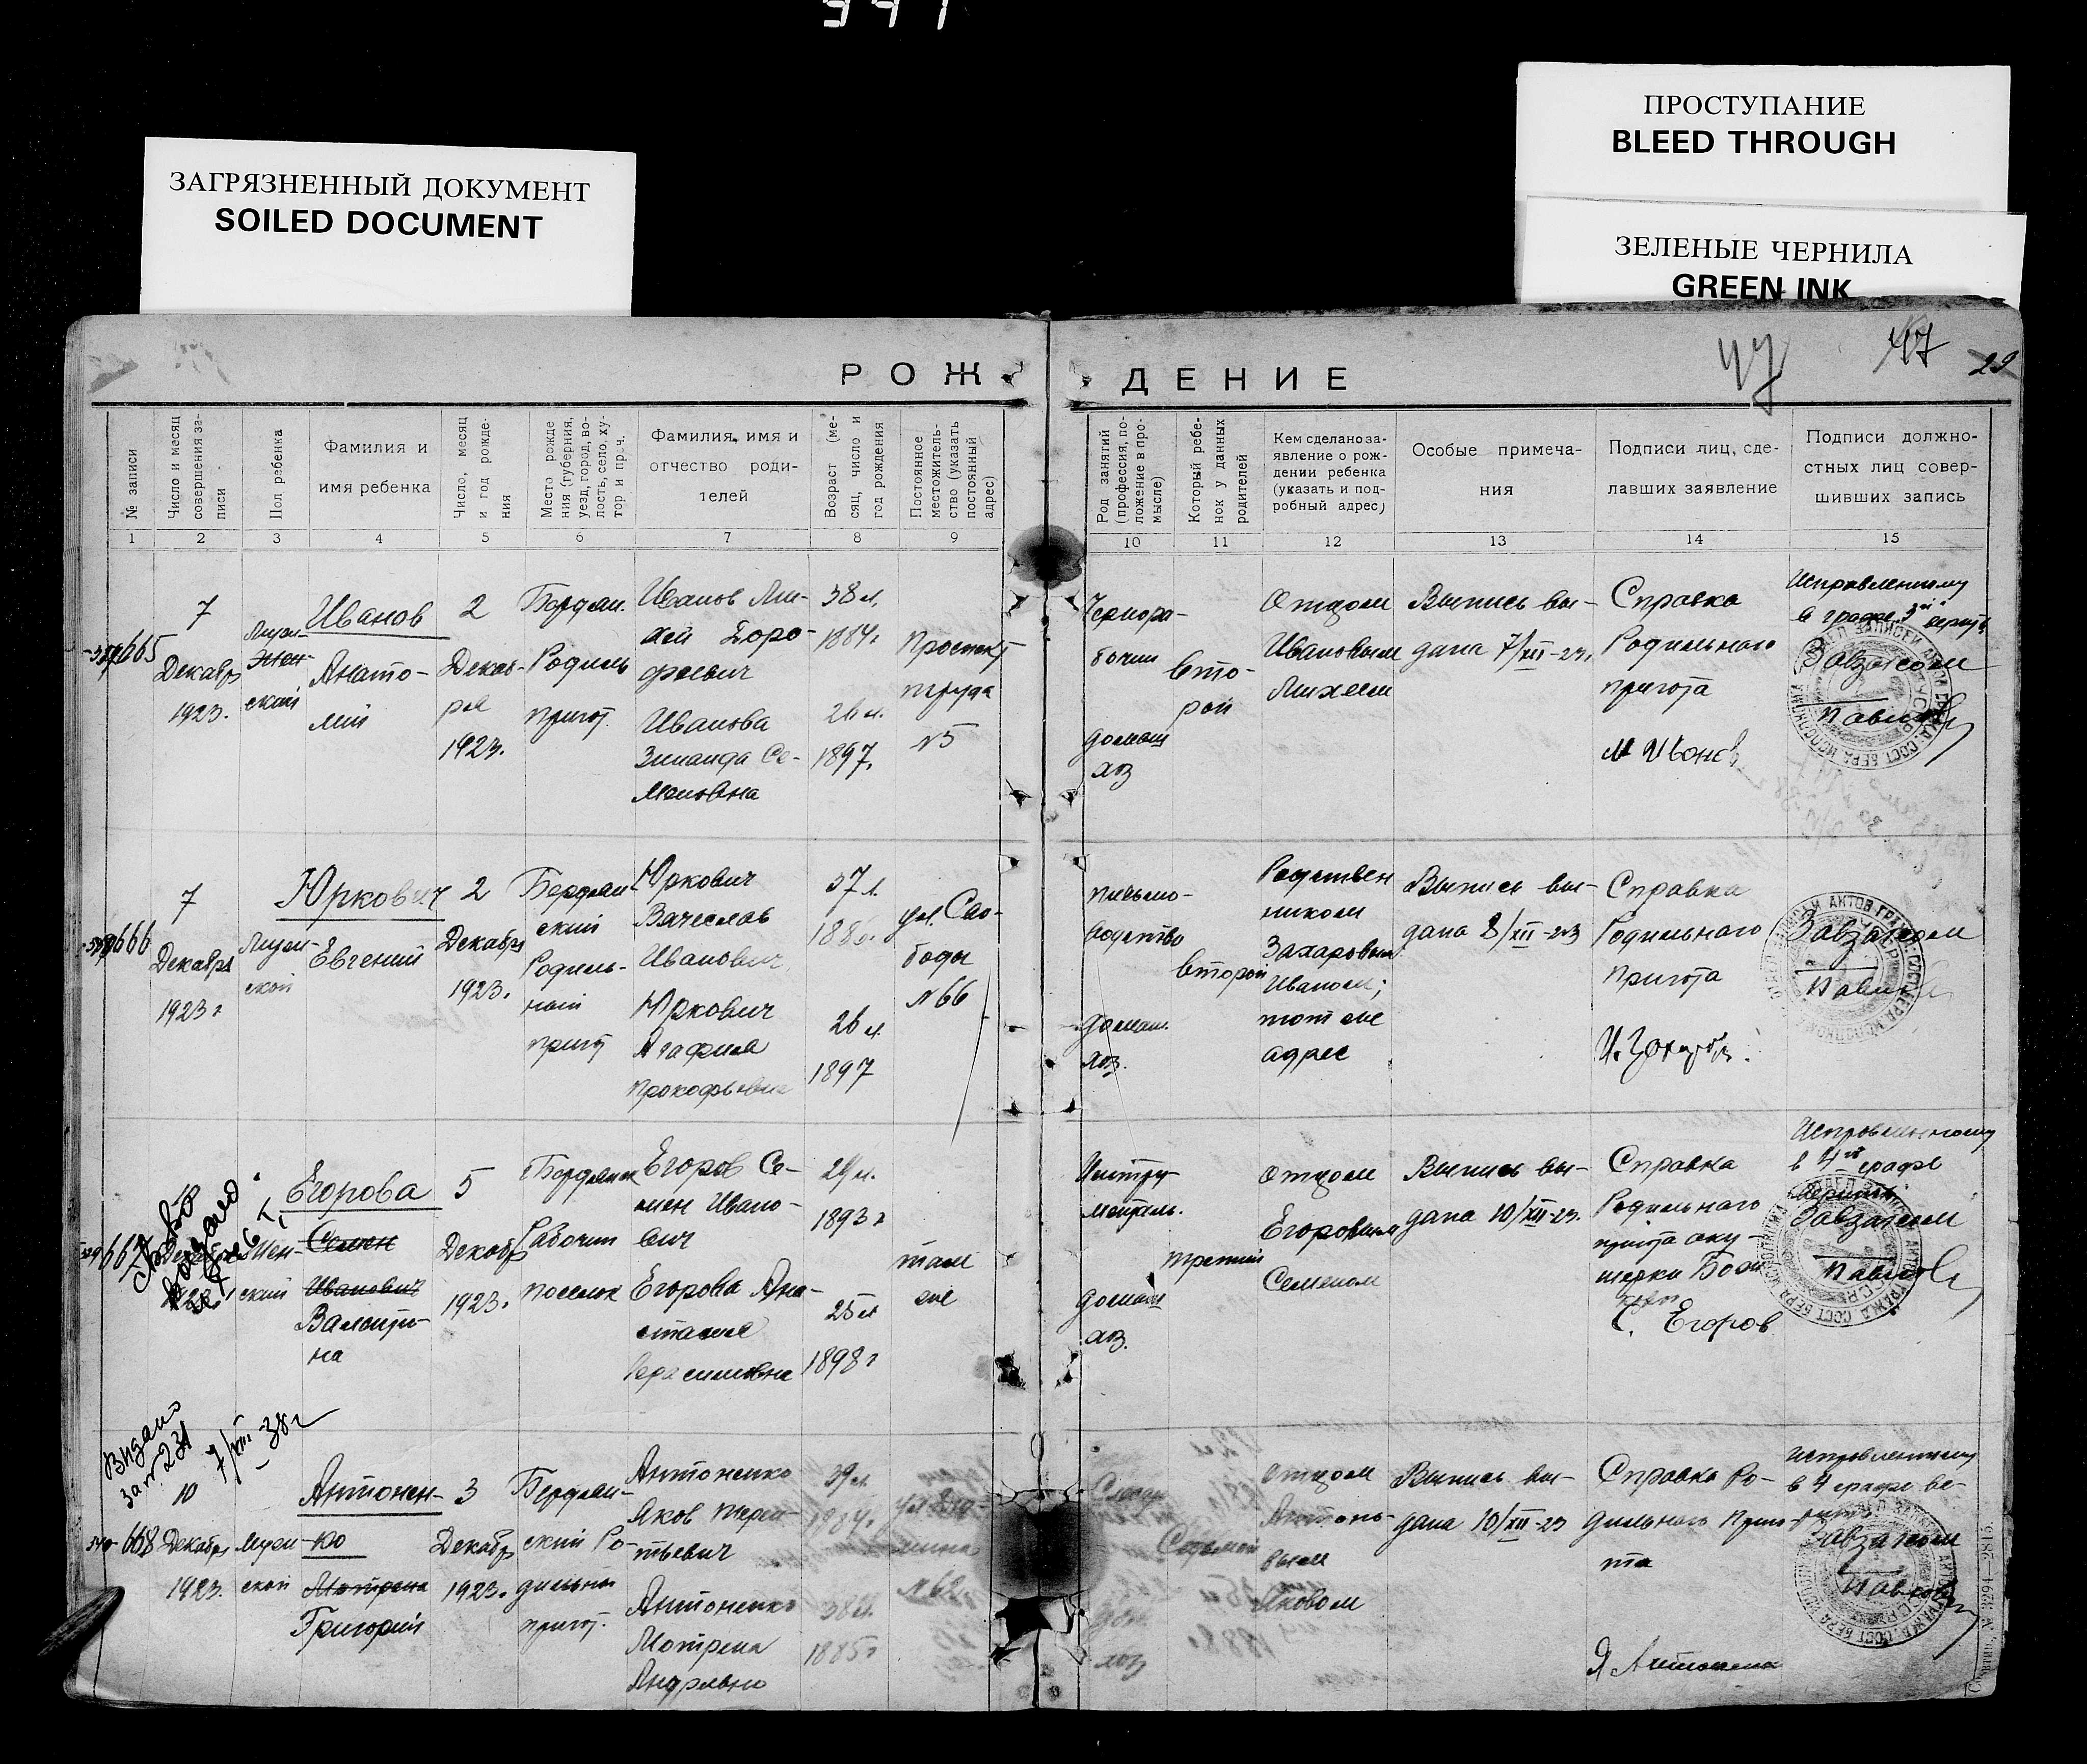 ЗАГРЯЗНЕННЫЙ ДОКУМЕНТ
SOILED DOCUMENT
ПРОСТУПАНИЕ
BLEED THROUGH
ЗЕЛЕНЫЕ ЧЕРНИЛА
GREEN INK
47
29
РОЖ
ДЕНИЕ
№ записи
Число и месяц
совершения за-
писи
Пол ребенка
Фамилия и
имя ребенка
Число, месяц
и год рожде-
ния
Место рожде
ния (губерния,
уезд, город, во-
лость, село, ху-
тор и проч.
Фамилия, имя и
отчество роди-
телей
Возраст (ме-
сяц, число и
год рождения
Постоянное
местожитель-
ство (указать
постоянный
адрес)
Род занятий
(профессия, по-
ложение в про-
мысле)
Который ребе-
нок у данных
родителей
Кем сделано за-
явление о рож-
дении ребенка
(указать и под-
робный адрес)
Особые примеча-
ния
Подписи лиц, сде-
лавших заявление
Подписи должно-
стных лиц совер-
шивших запись
1 2 3 4 5 6 7 8 9 10 11 12 13 14 15
665
7
Декабр
1923.
Иванов
Анато-
лий
2
Декаб-
ря
1923.
Бердян.
Родиль
приют.
Иванов Ми-
хей Доро-
феевич
Иванова
Зинаида Се-
меновна
38 л.
1884г
26 л.
1897.
Проспект
труда
№5
Чернора-
бочий
домаш
хоз
Вто-
рой
Отцом
Ивановым
Михеем
Выпись вы-
дана 7/XII-23.
Справка
Родильного
приюта
Исправленному
в графе 3й верить
Завзагсом
666
7
Декабря
1923г
Мужс-
ской
Юркович
Евгений
2
Декабр
1923.
Бердян
ский
Родиль-
ный
приют
Юркович
Вячеслав
Иванович
Юркович
Агафия
Прокофьевна
37 л.
26 л.
1897
ул. Сво-
боды
№66
письмо-
водство
домаш.
хоз.
второй
Родствен
ником
Захаровым
Иваном;
тот же
адрес
Выпись вы-
дана 8/XII-23
Справка
Родильного
Приюта
Завзагсом
667
Жен-
ский
Егорова
Семен
Иванович
Валенти-
на
5
Декабр
1923.
Бердянск
Рабочий
поселок
Егоров Се-
мен Ивано-
вич
Егорова Ана-
стасия
Герасимовна
29 л.
1893г
25 л
1898г
там
же
домаш
хоз.
третий
Отцом
Егоровым
Семеном
Выпись вы-
дана 10/XII-23.
Справка
Родильного
приюта аку-
шерки
С. Егоров
Исправленному
в 4й графе
верить
Завзагсом
7/XII-38г
668
10
Декабр
1923.
Мужс-
ской
Антонен-
ко
Мотрена
Григорий
3
Декабр
1923.
Бердян-
ский Ро-
дильны
приют.
Антоненко
Яков Терен-
тьевич
Антоненко
Мотрена
Андреевна
39 л.
1884г.
38 л.
1885г
№62.
Седьмой
отцом
Яковом
Выпись вы-
дана 10/XII-23
Справка Ро-
дильного Прию-
та
Исправленному
в 4 графе ве-
рить
Завзагсом